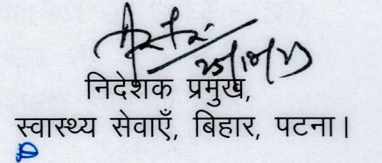 25/10/23
निदेशक प्रमुख,
स्वास्थ्य सेवाएँ, बिहार, पटना।